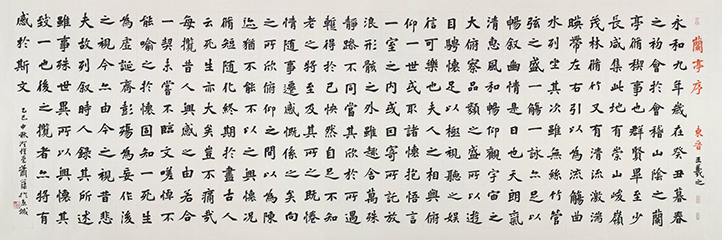 蘭亭序 東晉 王羲之
永和九年歲在癸丑暮春
之初會於會稽山陰之蘭
亭脩稧事也群賢畢至少
長咸集此地有崇山峻嶺
茂林脩竹又有清流激湍
暎帶左右引以為流觴曲
水列坐其次雖無絲竹管
弦之盛一觴一詠亦足以
暢叙幽情是日也天朗氣
清惠風和暢仰觀宇宙之
大俯察品類之盛所以遊
目騁懷足以極視聽之娛
信可樂也夫人之相與俯
仰一世或取諸懷抱悟言
一室之内或因寄所託放
浪形骸之外雖趣舍萬殊
靜躁不同當其欣於所遇
暫得於己快然自足不知
老之將至及其所之既惓
情隨事遷感慨係之矣向
之所欣俛仰之間以為陳
迹猶不能不以之興懷況
脩短隨化終期於盡古人
云死生亦大矣豈不痛哉
每攬昔人興感之由若合
一契未嘗不臨文嗟悼不
能喻之於懷固知一死生
為虛誕齊彭殤為妄作後
之視今亦由今之視昔悲
夫故列叙時人錄其所述
雖事殊世異所以興懷其
致一也後之攬者亦將有
感於斯文
乙巳中秋